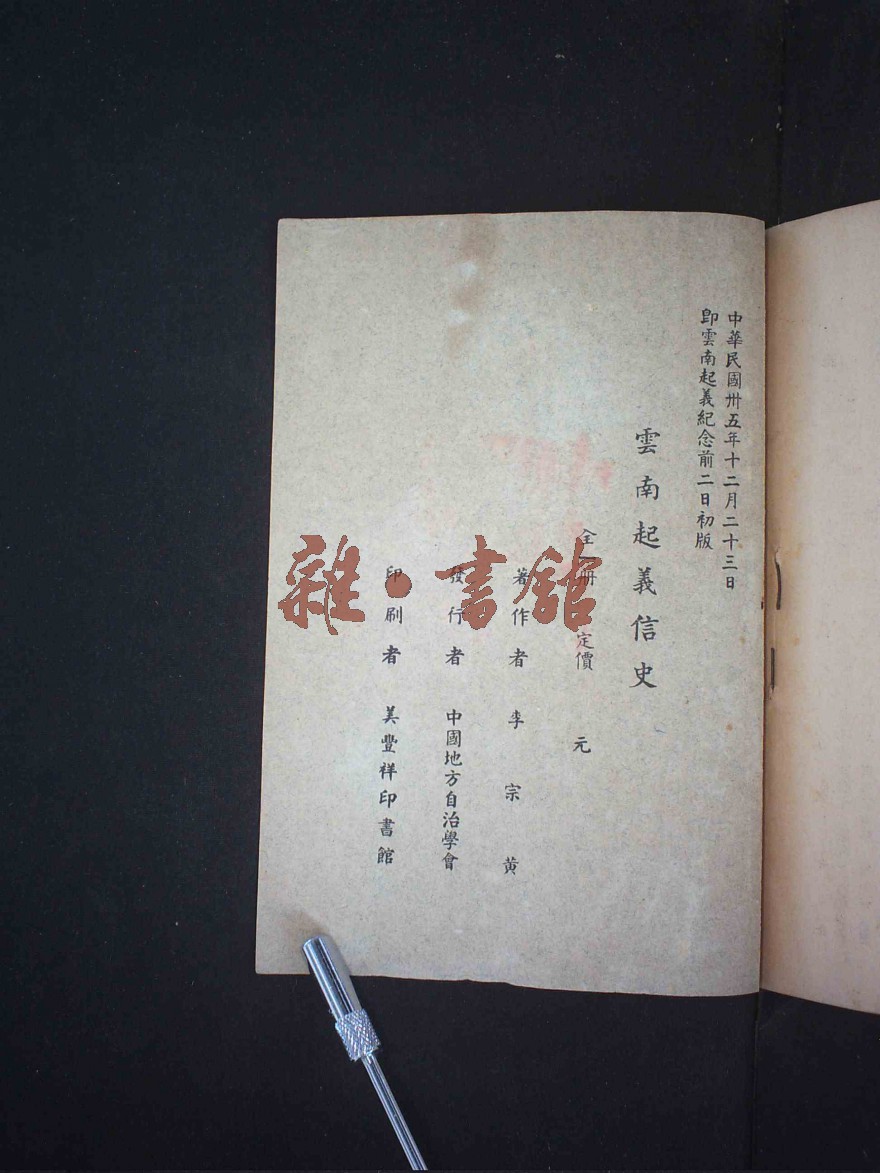 中華民國卅五年十二月二十三日
即雲南起義紀念前二日初版
雲南起義信史
全一冊 定價 元
著作者 李宗黄
發行者 中國地方自治學會
印刷者 美豐祥印書館
雜·書館